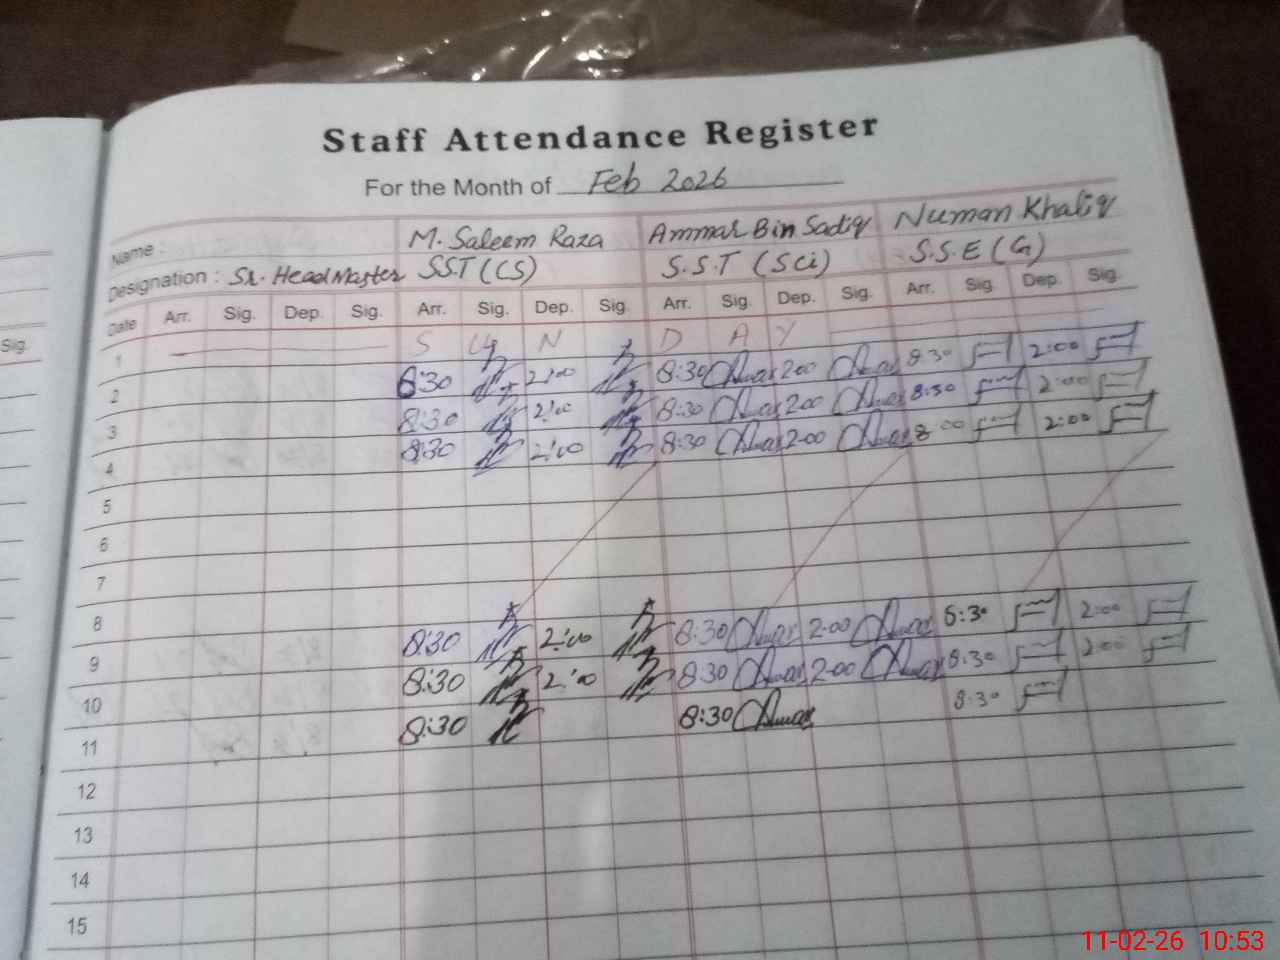 Staff Attendance Register
For the Month of Feb 2026
Name : M. Saleem Raza Ammar Bin Sadiq Numan Khaliq
Designation : Sr. Head Master SST (CS) S.S.T (Sci) S.S.E (G)
Date Arr. Sig. Dep. Sig. Arr. Sig. Dep. Sig. Arr. Sig. Dep. Sig. Arr. Sig. Dep. Sig.
Sig.
1 S U N D A Y
2 8:30 2:00 8:30 2:00 8:30 2:00
3 8:30 2:00 8:30 2:00 8:30 2:00
4 8:30 2:00 8:30 2:00 8:00 2:00
5
6
7
8
9 8:30 2:00 8:30 2:00 8:30 2:00
10 8:30 2:00 8:30 2:00 8:30 2:00
11 8:30 8:30 8:30
12
13
14
15
11-02-26 10:53